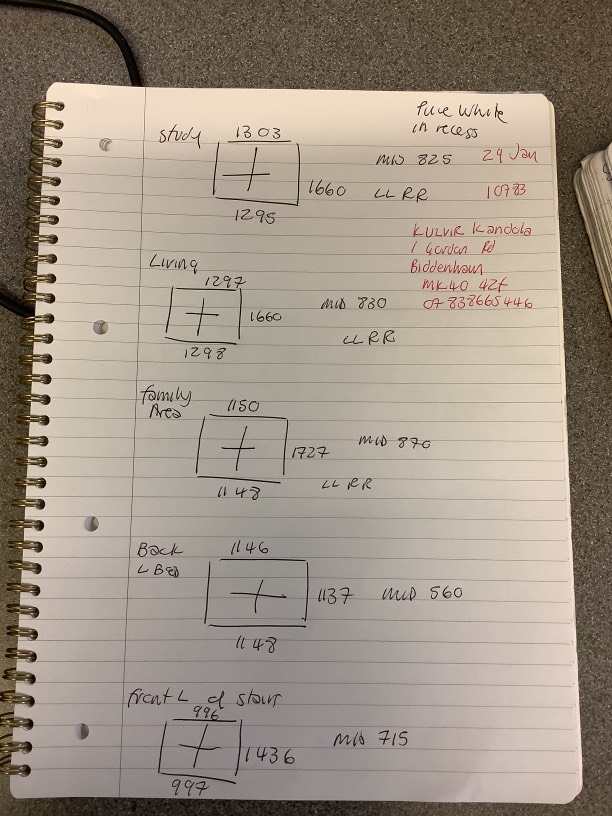 Pure White
in recess
Study 1303
MID 825 29 Jan
1660 LL RR 10783
1295
KULVIR Kandola
1 Gordon Rd
Biddenham
MK40
07838665446
Living
1297
1660 MID 830
LL RR
1298
family
Area
1150
1727 MID 870
LL RR
1148
Back
L Bed
1146
1137 MID 560
1148
front L d stairs
996
1436 MID 715
997